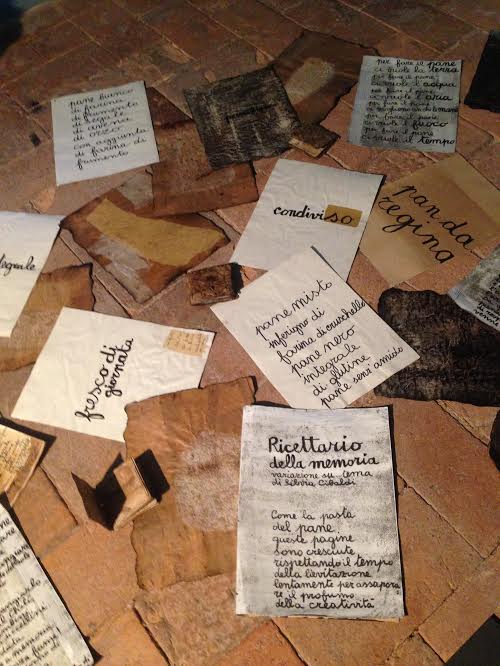 pane bianco
di farina
di frumento
di segale
di avena
di orzo
con aggiunta
di farina di
frumento
per fare il pane
ci vuole la terra
per fare il pane
ci vuole l'acqua
per fare il pane
ci vuole l'aria
per fare il pane
per fare il pane
ci vuole il fuoco
per fare il pane
ci vuole il tempo
condiviso
pan da
regina
integrale
pane misto
inferigno di
farina di cruschello
pane nero
integrale
di glutine
pane semi amido
fresco di
giornata
Ricettario
della memoria
variazione su tema
di Silvia Cibaldi
Come la pasta
del pane
queste pagine
sono cresciute
rispettando il tempo
della lievitazione
lentamente per assapora
re il profumo
della creatività